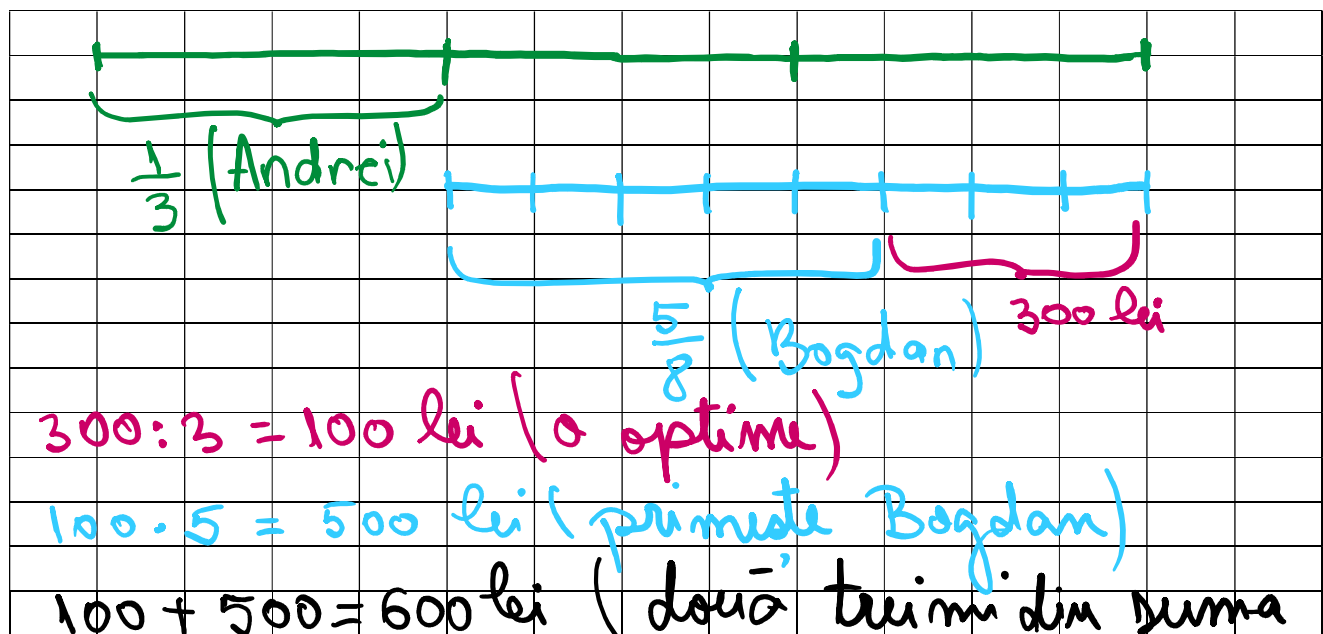 1/3 (Andrei)
5/8 (Bogdan)
300 lei
300:3 = 100 lei (o optime)
100 · 5 = 500 lei (primește Bogdan)
100 + 500 = 600 lei ( două treimi din suma